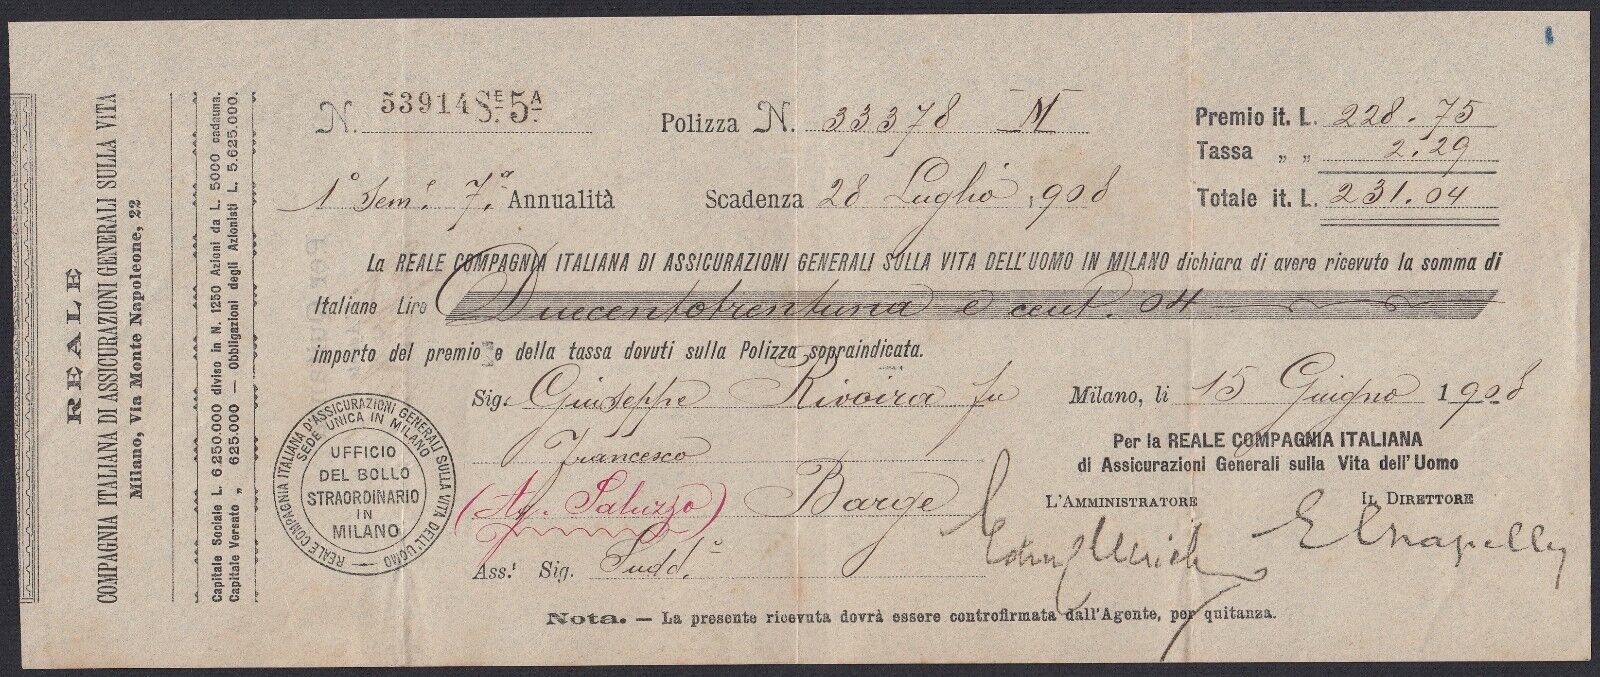 REALE
COMPAGNIA ITALIANA DI ASSICURAZIONI GENERALI SULLA VITA
Milano, Via Monte Napoleone, 22
Capitale Sociale L. 6.250.000 diviso in N. 1250 Azioni da L. 5000 cadauna.
Capitale Versato „ 625.000 — Obbligazioni degli Azionisti L. 5.625.000.
N. 53914 SE. 5A Polizza N. 33378 M Premio it. L. 228.75
Tassa „ „ 2.29
1° Sem.e 7.a Annualità Scadenza 28 Luglio 1908 Totale it. L. 231.04
La REALE COMPAGNIA ITALIANA DI ASSICURAZIONI GENERALI SULLA VITA DELL'UOMO IN MILANO dichiara di avere ricevuto la somma di
Italiane Lire Duecentotrentuna e cent. 04
importo del premio e della tassa dovuti sulla Polizza sopraindicata.
Sig. Giuseppe Rivoira fu Milano, li 15 Giugno 1908
Francesco
(Ag. Saluzzo) Barge
Ass.t Sig. Sudd.o
Per la REALE COMPAGNIA ITALIANA
di Assicurazioni Generali sulla Vita dell'Uomo
L'AMMINISTRATORE IL DIRETTORE
REALE COMPAGNIA ITALIANA D'ASSICURAZIONI GENERALI SULLA VITA DELL'UOMO
SEDE UNICA IN MILANO
UFFICIO
DEL BOLLO
STRAORDINARIO
IN
MILANO
Nota. — La presente ricevuta dovrà essere controfirmata dall'Agente, per quitanza.